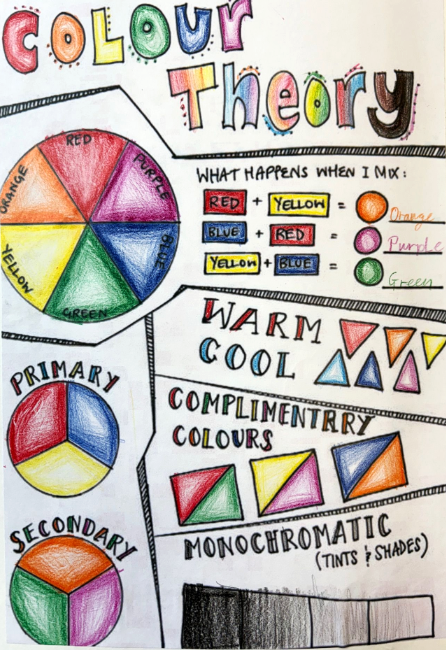 COLOUR
Theory
RED
PURPLE
BLUE
GREEN
YELLOW
ORANGE
WHAT HAPPENS WHEN I MIX:
RED + YELLOW = Orange
BLUE + RED = Purple
YELLOW + BLUE = Green
WARM
COOL
PRIMARY
COMPLIMENTARY
COLOURS
SECONDARY
MONOCHROMATIC
(TINTS & SHADES)